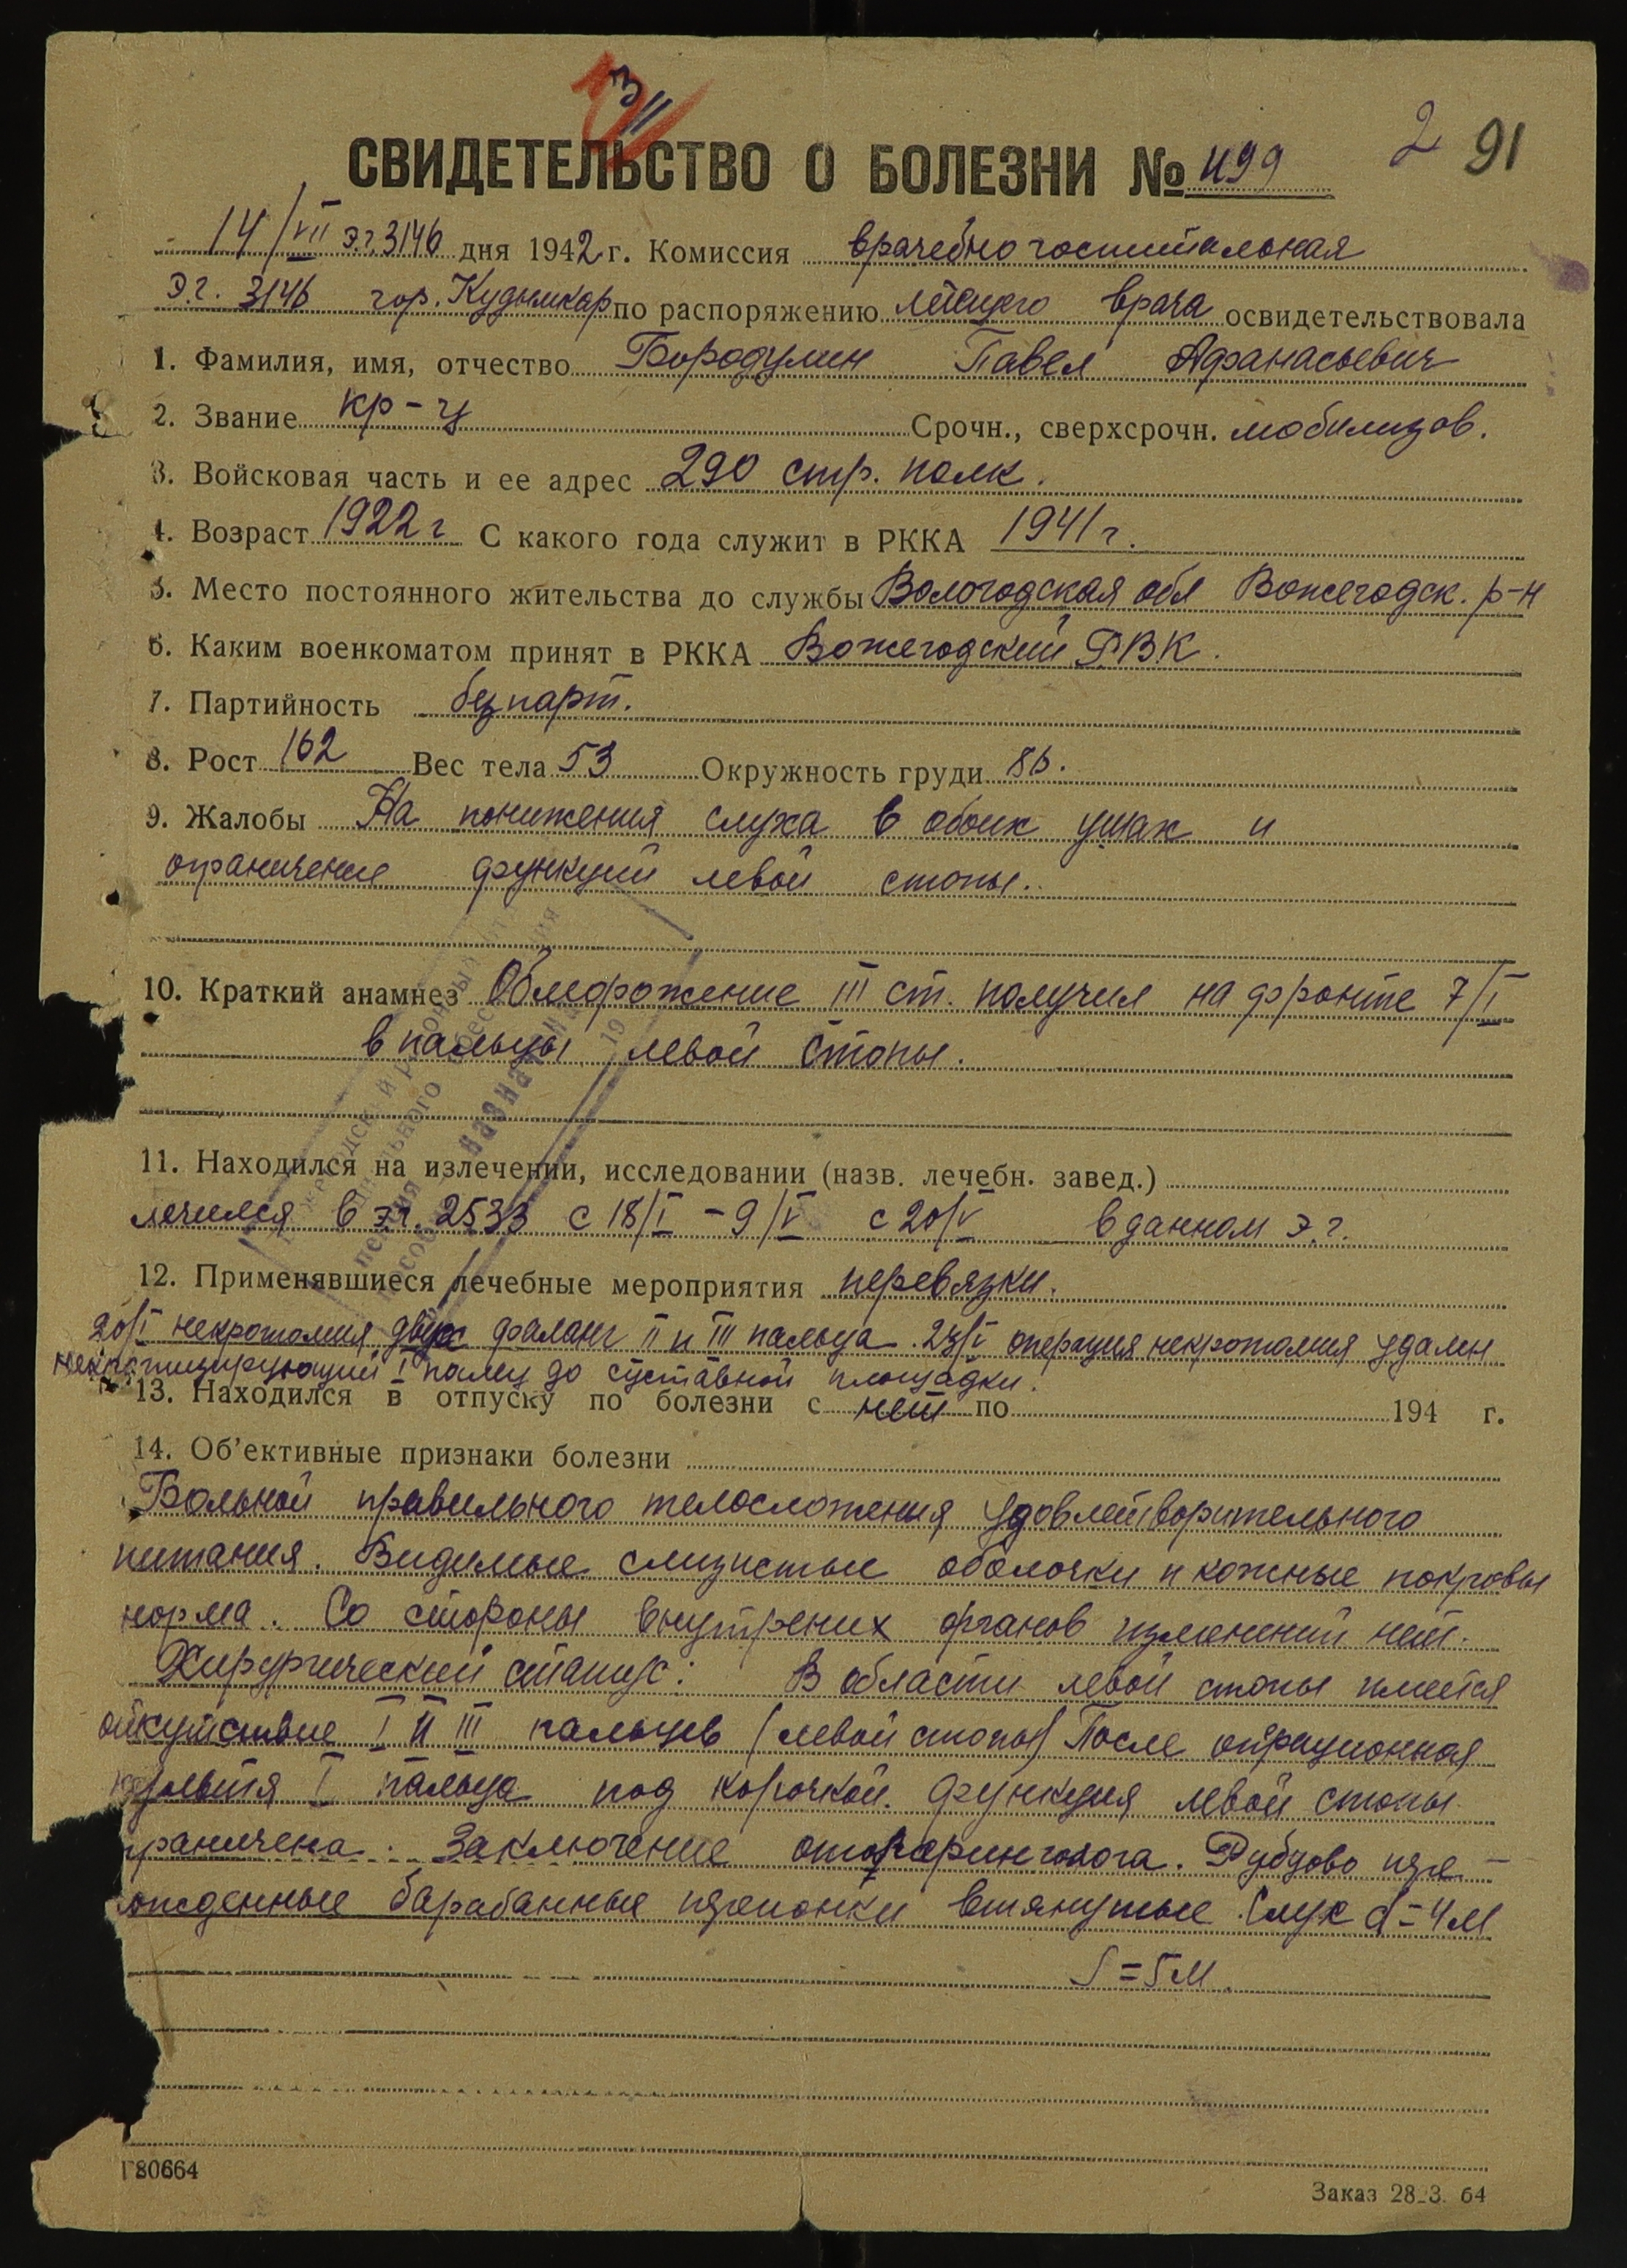 3
11
2 91
СВИДЕТЕЛЬСТВО О БОЛЕЗНИ № 499
14/VII э.г. 3146 дня 1942 г. Комиссия врачебно госпитальная
Э.г. 3146 гор. Кудымкар по распоряжению врача освидетельствовала
1. Фамилия, имя, отчество Бородулин Павел Афанасьевич
2. Звание кр-ц Срочн., сверхсрочн. мобилизов.
3. Войсковая часть и ее адрес 290 стр. полк.
4. Возраст 1922 г С какого года служит в РККА 1941 г.
5. Место постоянного жительства до службы Вологодская обл Вожегодск. р-н
6. Каким военкоматом принят в РККА Вожегодский РВК.
7. Партийность безпарт.
8. Рост 162 Вес тела 53 Окружность груди 86.
9. Жалобы На понижения слуха в обоих ушах и
ограничение функций левой стопы.
10. Краткий анамнез Обморожение III ст. получил на фронте 7/I
в пальцы левой стопы.
11. Находился на излечении, исследовании (назв. лечебн. завед.)
лечился в э.г. 2533 с 18/I – 9/V с 20/V в данном э.г.
12. Применявшиеся лечебные мероприятия перевязки.
20/I некротомия двух фаланг II и III пальца. операция некротомия удален
некротизирующий I палец до суставной площадки.
13. Находился в отпуску по болезни с нет по 194 г.
14. Об'ективные признаки болезни
Больной правильного телосложения удовлетворительного
питания. Видимые слизистые оболочки и кожные покровы
норма. Со стороны внутрених органов изменений нет.
Хирургический статус: В области левой стопы имеется
отсутствие I II III пальцев (левой стопы) После операционная
культя I пальца под корочкой. Функция левой стопы
граничена. Заключение отоларинголога. Рубцово пере-
ожденные барабанные перепонки втянутые. Слух d = 4 м
S = 5 м.
Г80664
Заказ 28_3. 64